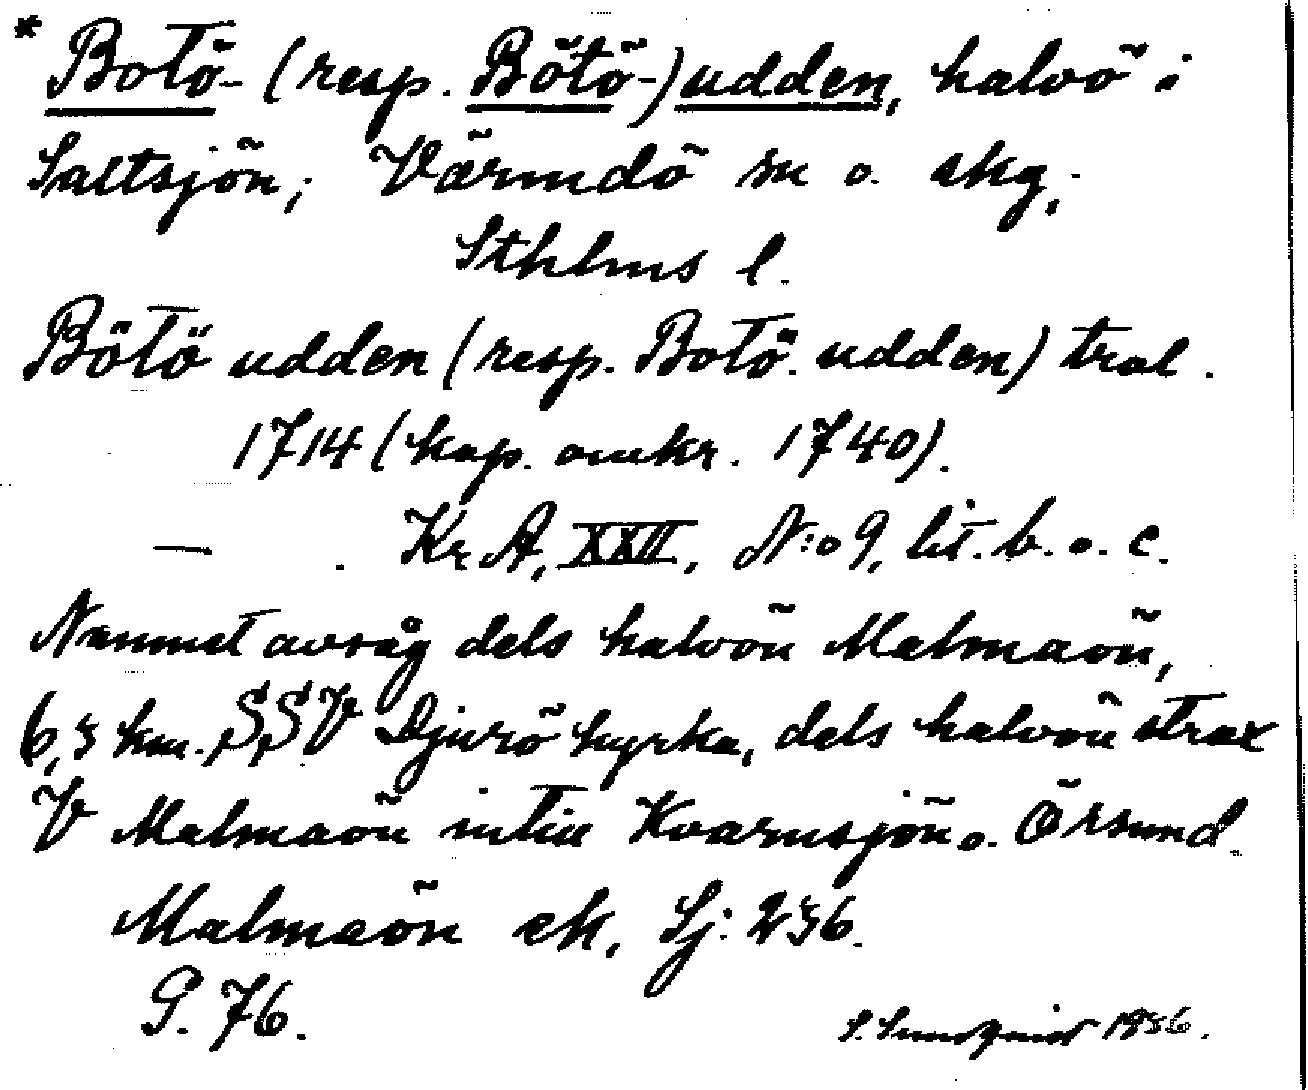 * Botö- (resp. Bötö-) udden, halvö i
Saltsjön; Värmdö sn o. skg,
Sthlms l.
Bötö udden (resp. Botö udden) tral.
1714 (kop. omkr. 1740).
— . Kr A, XXII, N:o 9, lit. b. o. c.
Namnet avsåg dels halvön Malmaön,
6,5 km. SSV Djurö kyrka, dels halvön strax
V Malmaön intill Kvarnsjön o. Örsund
Malmaön ek, Sj: 256.
G. 76.
S. Sundqvist 1956.